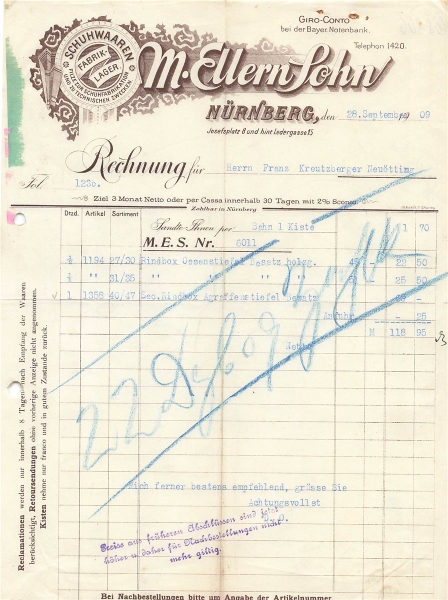 GIRO-CONTO
bei der Bayer. Notenbank.
Telephon 1420.
SCHUHWAAREN
FABRIK-
LAGER
FILZE FÜR SCHUHFABRIKATION
UND ZU TECHNISCHEN ZWECKEN
M. Ellern Sohn
NÜRNBERG, den 28. September 09
Josefsplatz 6 und hint. Ledergasse 15
Rechnung für Herrn Franz Kreutzberger Neuötting
Fol. 1230.
Ziel 3 Monat Netto oder per Cassa innerhalb 30 Tagen mit 2% Sconto.
Zahlbar in Nürnberg
Dtzd. Artikel Sortiment
Sandte Ihnen per Bahn 1 Kiste 1 70
M.E.S. Nr. 6011
1194 27/30 Rindbox Oesenstiefel Besatz holzg. 45 - 22 50
" 31/35 " " " 25 50
1 1356 40/47 Rindbox Agraffenstiefel Besatz
Anfuhr 25
M 118 95
Netto
22 Dez 09
Mich ferner bestens empfehlend, grüsse Sie
Achtungsvollst
Preise aus früheren Abschlüssen sind jetzt
höher u. daher für Nachbestellungen nicht
mehr giltig.
Reclamationen werden nur innerhalb 8 Tagen nach Empfang der Waaren
berücksichtigt, Retoursendungen ohne vorherige Anzeige nicht angenommen.
Kisten nehme nur franco und in gutem Zustande zurück.
Bei Nachbestellungen bitte um Angabe der Artikelnummer.